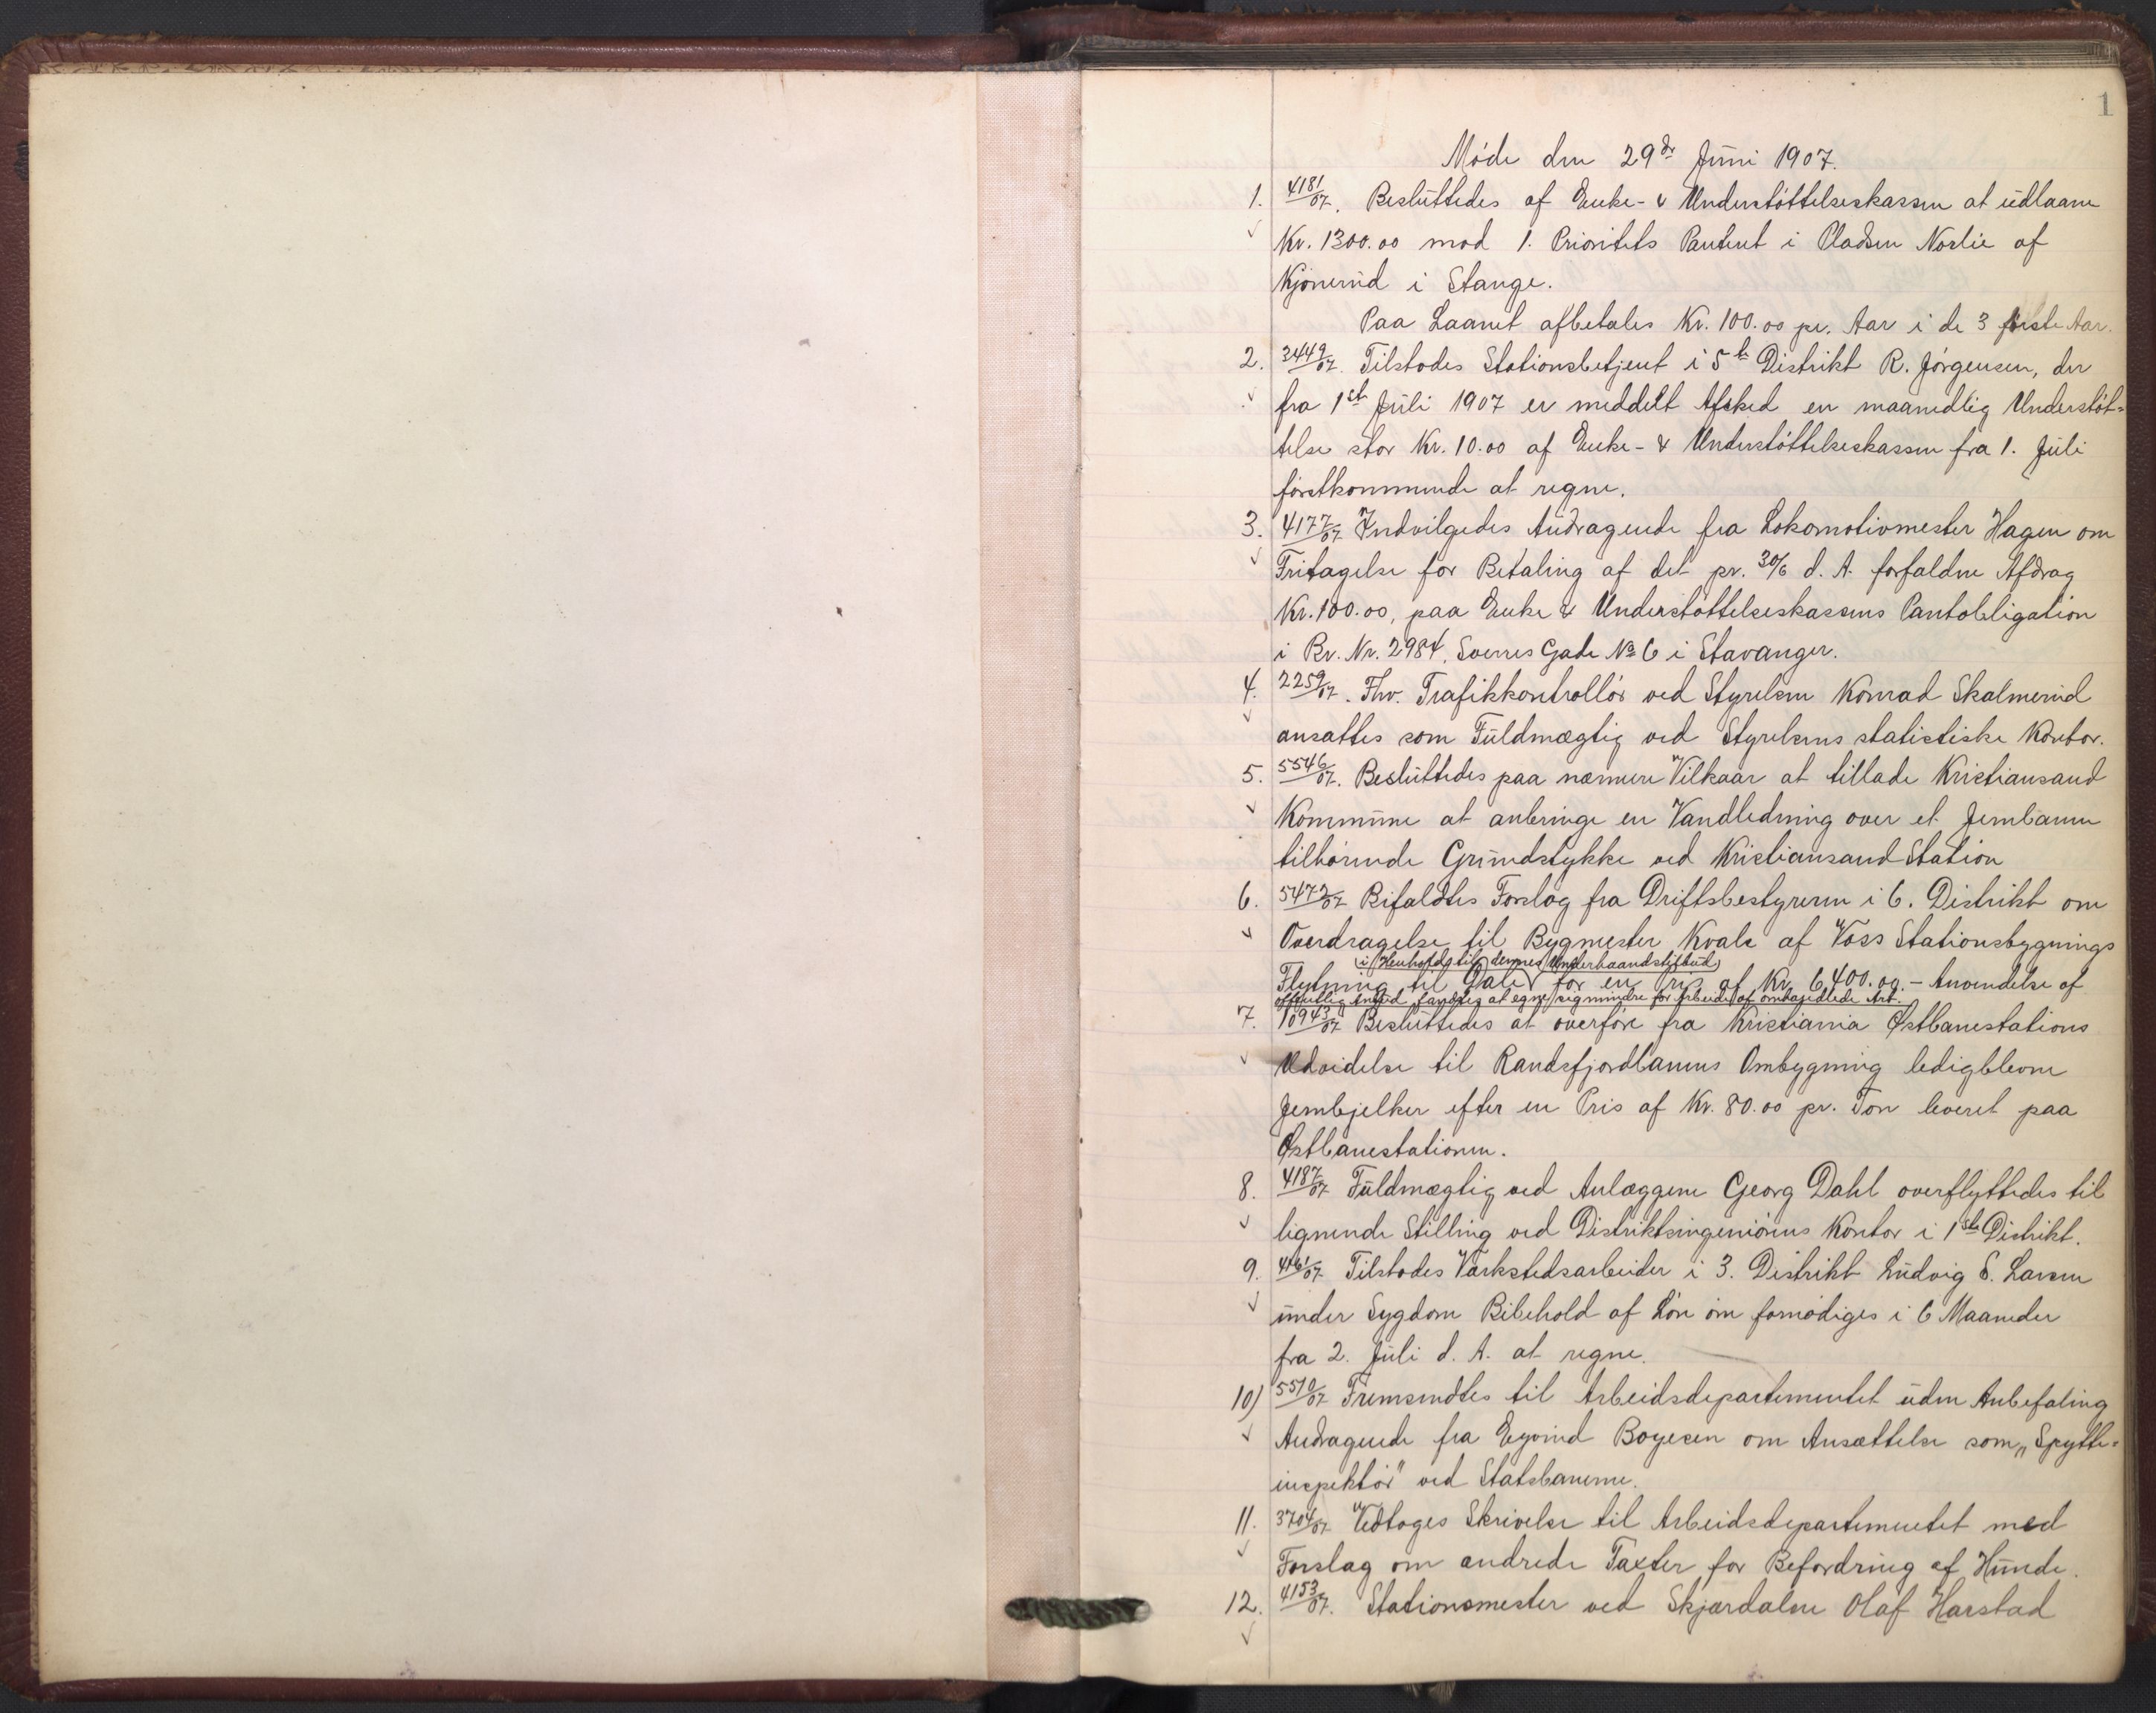 1
Møde den 29de Juni 1907.
1. 4181/07. Besluttedes af Enke- & Understøttelseskassen at udlaane
Kr. 1300.00 mod 1. Prioritets Panteret i Pladsen Norlie af
Kjonerud i Stange.
Paa Laanet afbetales Kr. 100.00 pr. Aar i de 3 første Aar.
2. 3449/07. Tilstodes Stationsbetjent i 5te Distrikt R. Jørgensen, der
fra 1ste Juli 1907 er meddelt Afsked en maanedlig Understøt-
telse stor Kr. 10.00 af Enke- & Understøttelseskassen fra 1. Juli
førstkommende at regne.
3. 4177/07 Indvilgedes Andragende fra Lokomotivmester Hagen om
Fritagelse for Betaling af det pr. 30/6 d. A. forfaldne Afdrag
Kr. 100.00, paa Enke & Understøttelseskassens Pantobligation
i Br. Nr. 2984, Sverres Gade No 6 i Stavanger.
4. 2259/07. Fhv. Trafikkontrollør ved Styrelsen Konrad Skalmerud
ansattes som Fuldmægtig ved Styrelsens statistiske Kontor.
5. 5546/07. Besluttedes paa nærmere Vilkaar at tillade Kristiansand
Kommune at anbringe en Vandledning over et Jernbanen
tilhørende Grundstykke ved Kristiansand Station
6. 5472/07 Bifaldtes Forslag fra Driftsbestyreren i 6. Distrikt om
Overdragelse til Bygmester Kvale af Voss Stationsbygnings
(i Henhold til dennes Underhaandstilbud)
Flytning til Dale for en Pris af Kr. 6,400.00. – Anvendelse af
offentlig Anbud fandtes at egne sig mindre for Arbeide af omhandlede Art.
7. 10943/07 Besluttedes at overføre fra Kristiania Østbanestations
Udvidelse til Randsfjordbanens Ombygning ledigblevne
Jernbjelker efter en Pris af Kr. 80.00 pr. Ton leveret paa
Østbanestationen.
8. 4187/07 Fuldmægtig ved Anlæggene Georg Dahl overflyttedes til
lignende Stilling ved Distriktsingeniørens Kontor i 1ste Distrikt.
9. 4161/07 Tilstodes Værkstedsarbeider i 3. Distrikt Ludvig S. Larsen
under Sygdom Bibehold af Løn om fornødiges i 6 Maaneder
fra 2. Juli d. A. at regne.
10) 5510/07 Fremsendtes til Arbeidsdepartementet uden Anbefaling
Andragende fra Eyvind Boyesen om Ansættelse som „Spytte-
inspektør" ved Statsbanerne.
11. 3704/07 Vedtoges Skrivelse til Arbeidsdepartementet med
Forslag om ændrede Taxter for Befordring af Hunde.
12. 4153/07. Stationsmester ved Skjærdalen Olaf Harstad